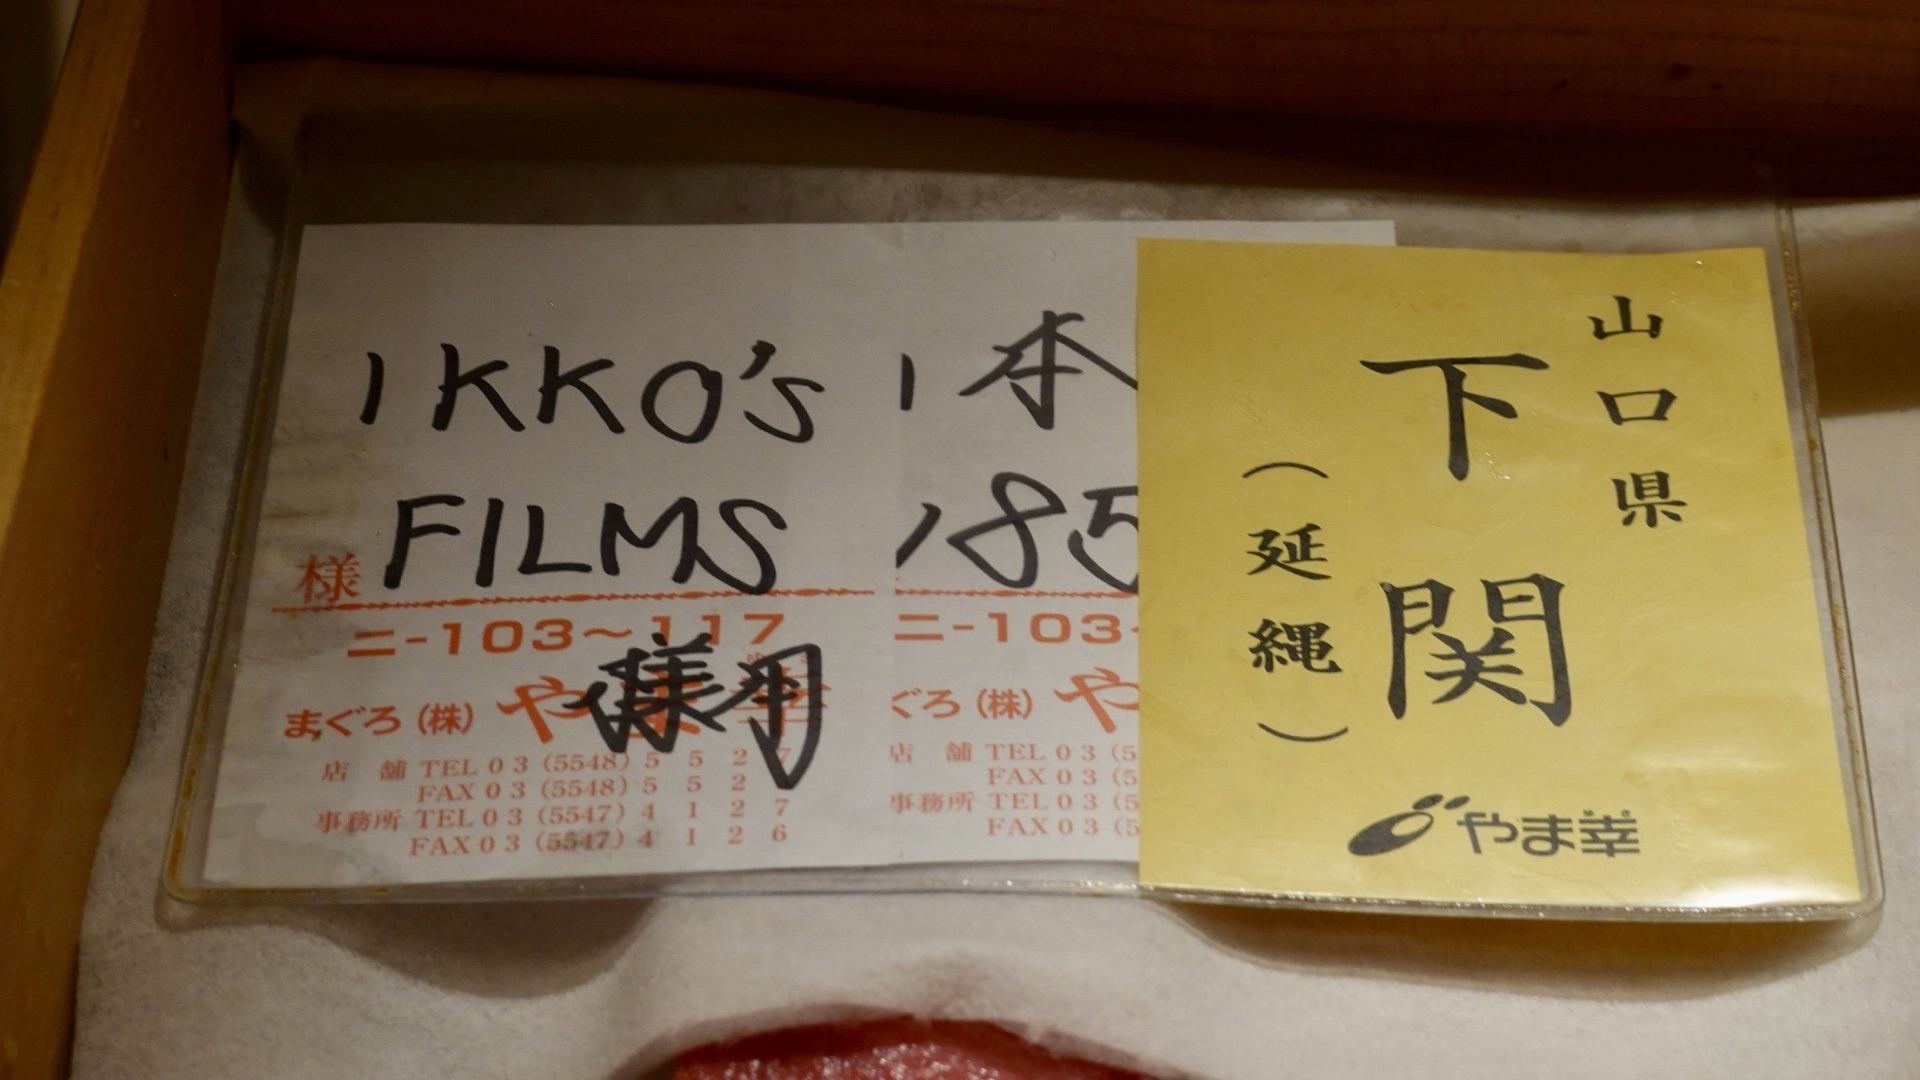 IKKO's
FILMS
様
ニ-103～117
まぐろ (株) やま幸
店 舗 TEL 03 (5548) 5 5 2 7
FAX 03 (5548) 5 5 2
事務所 TEL 03 (5547) 4 1 2 7
FAX 03 (5547) 4 1 2 6
様用
1本
185
ニ-103
ぐろ (株) や
店 舗 TEL 03 (5
FAX 03 (5
事務所 TEL 03 (5
FAX 03 (5
山口県
下関
(延縄)
やま幸